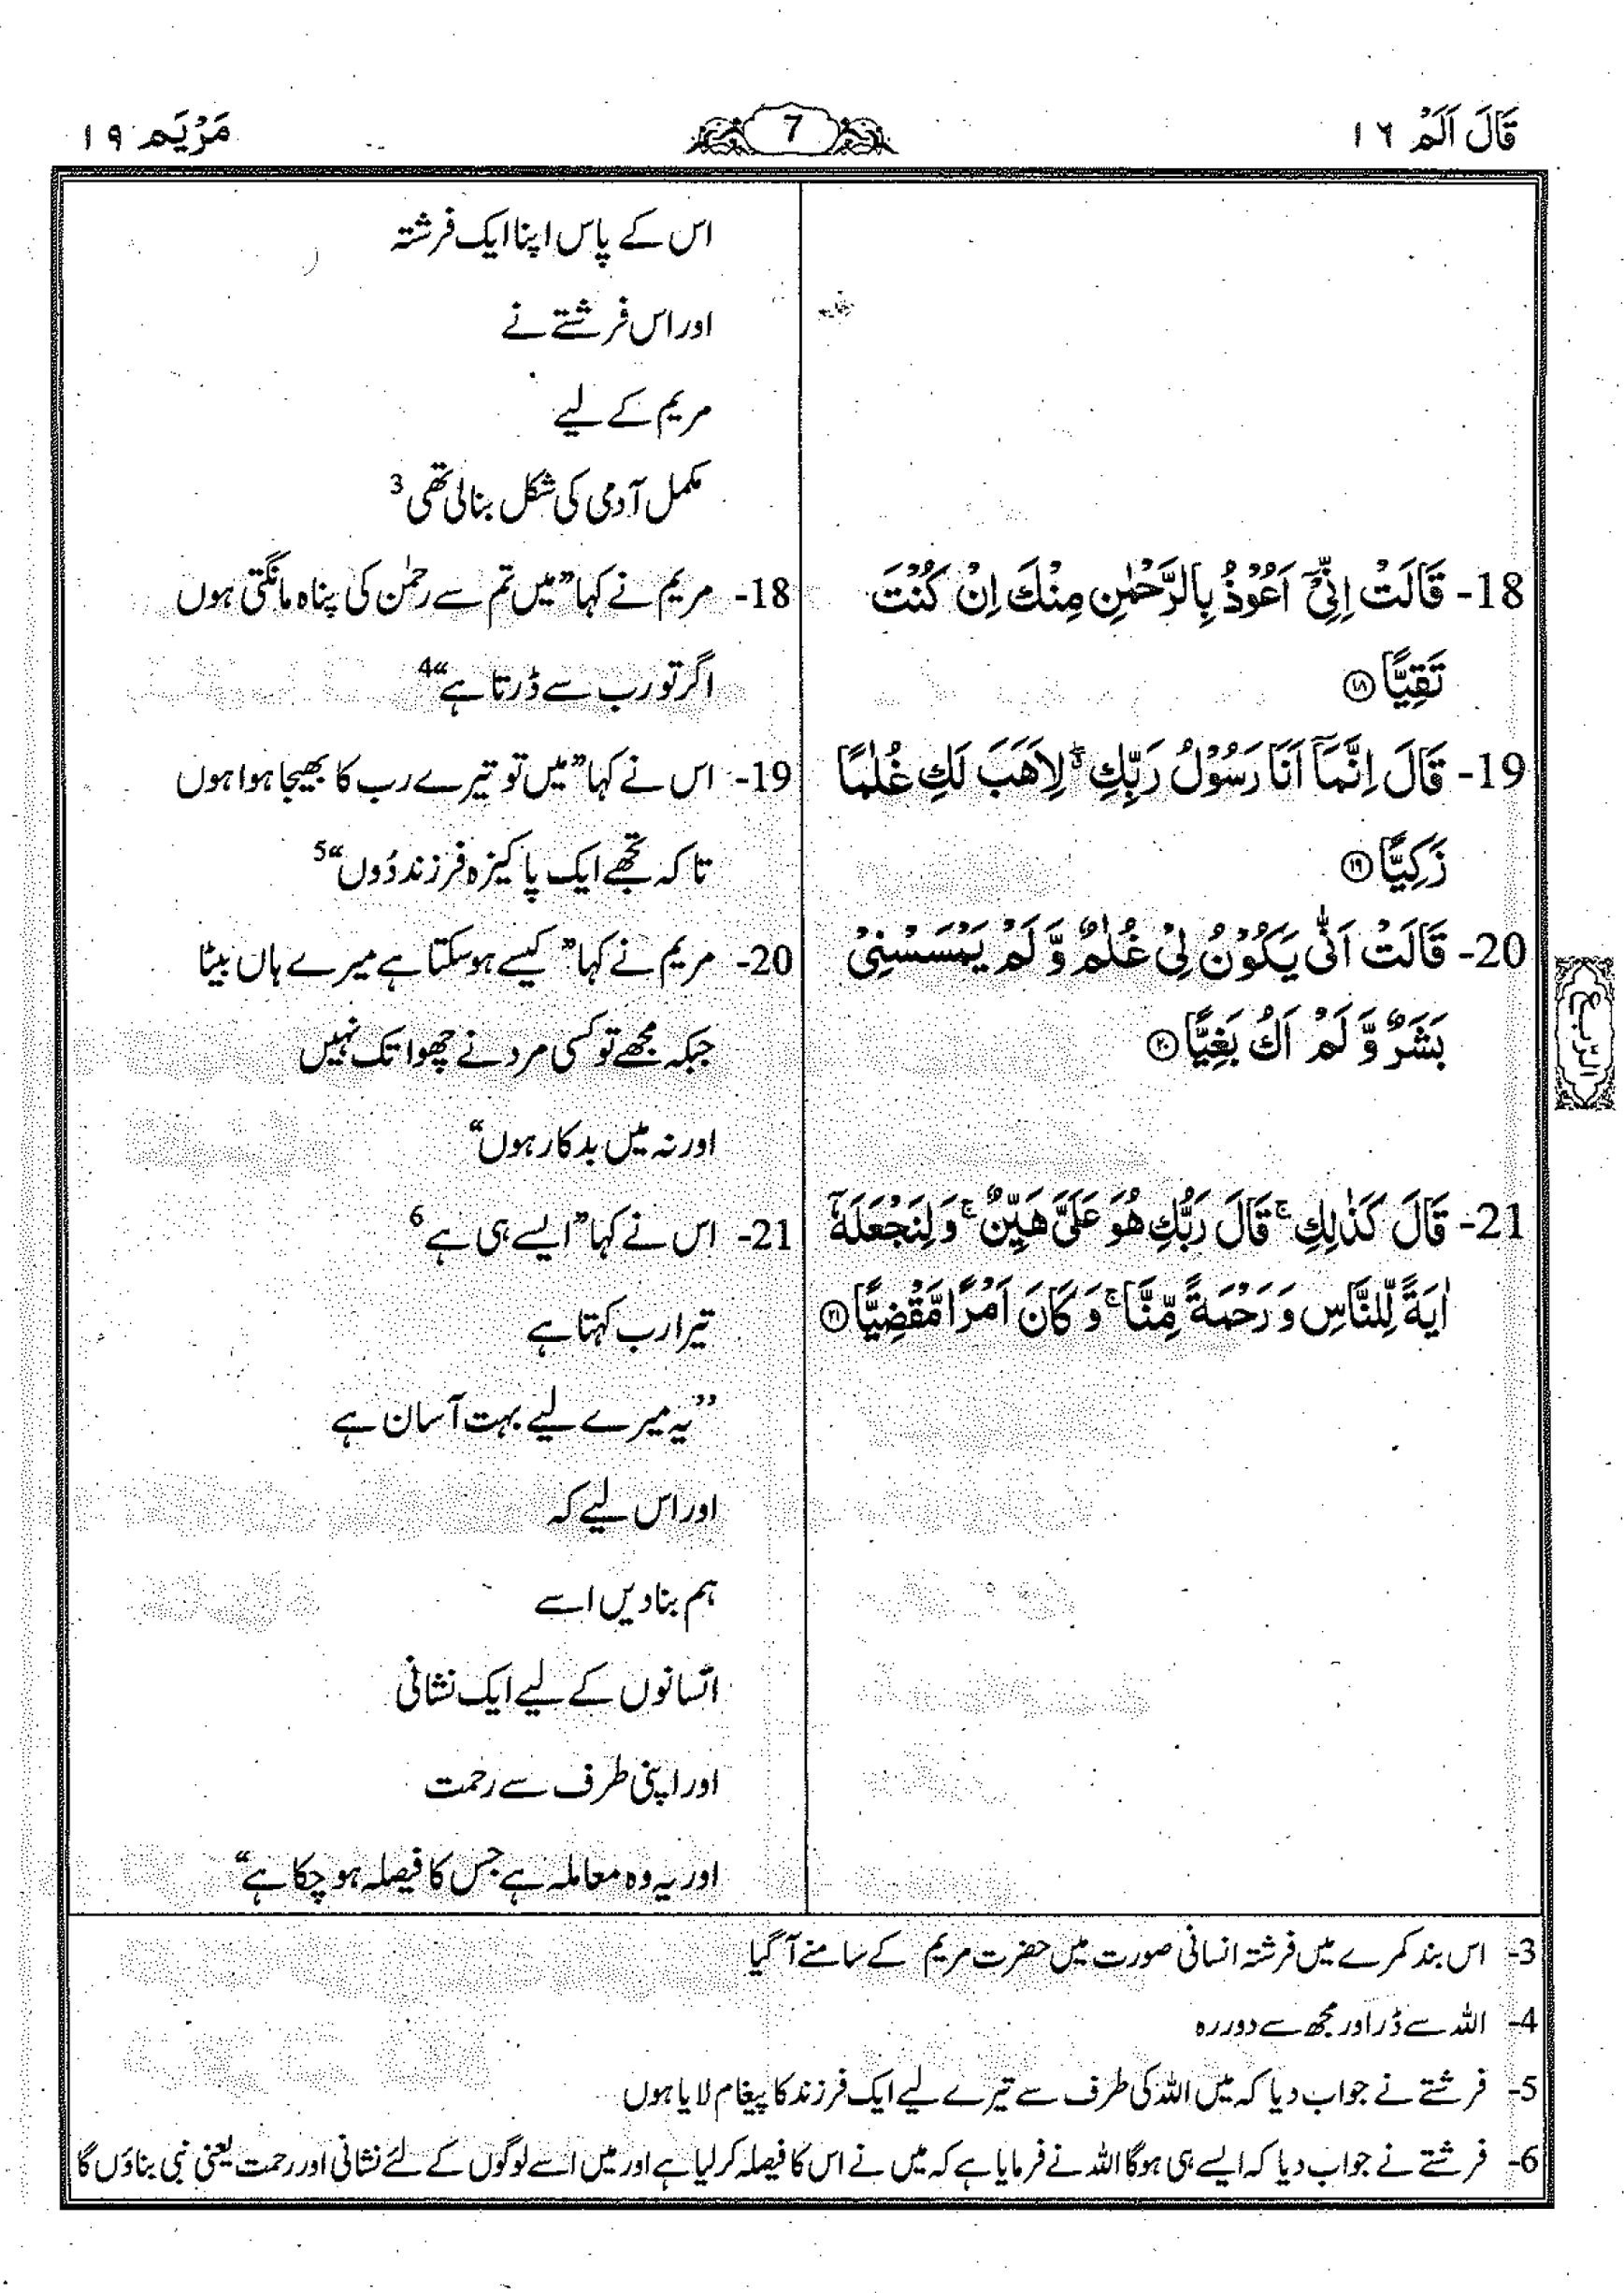 قَالَ اَلَمْ ١٦
7
مَرْيَم ١٩
18- قَالَتْ اِنِّيْۤ اَعُوْذُ بِالرَّحْمٰنِ مِنْكَ اِنْ كُنْتَ
تَقِيًّا ۝١٨
19- قَالَ اِنَّمَاۤ اَنَا رَسُوْلُ رَبِّكِ ۖۗ لِاَهَبَ لَكِ غُلٰمًا
زَكِيًّا ۝١٩
20- قَالَتْ اَنّٰى يَكُوْنُ لِيْ غُلٰمٌ وَّ لَمْ يَمْسَسْنِيْ
بَشَرٌ وَّ لَمْ اَكُ بَغِيًّا ۝٢٠
21- قَالَ كَذٰلِكِ ۚ قَالَ رَبُّكِ هُوَ عَلَيَّ هَيِّنٌ ۚ وَ لِنَجْعَلَهٗۤ
اٰيَةً لِّلنَّاسِ وَ رَحْمَةً مِّنَّا ۚ وَ كَانَ اَمْرًا مَّقْضِيًّا ۝٢١
اس کے پاس اپنا ایک فرشتہ
اور اس فرشتے نے
مریم کے لیے
مکمل آدمی کی شکل بنالی تھی 3
18- مریم نے کہا ”میں تم سے رحمٰن کی پناہ مانگتی ہوں
اگر تو رب سے ڈرتا ہے“ 4
19- اس نے کہا ”میں تو تیرے رب کا بھیجا ہوا ہوں
تاکہ تجھے ایک پاکیزہ فرزند دُوں“ 5
20- مریم نے کہا ”کیسے ہوسکتا ہے میرے ہاں بیٹا
جبکہ مجھے تو کسی مرد نے چھوا تک نہیں
اور نہ میں بدکار ہوں“
21- اس نے کہا ”ایسے ہی ہے 6
تیرا رب کہتا ہے
”یہ میرے لیے بہت آسان ہے
اور اس لیے کہ
ہم بنادیں اسے
انسانوں کے لیے ایک نشانی
اور اپنی طرف سے رحمت
اور یہ وہ معاملہ ہے جس کا فیصلہ ہو چکا ہے“
الرّبع
3- اس بند کمرے میں فرشتہ انسانی صورت میں حضرت مریم کے سامنے آ گیا
4- اللہ سے ڈر اور مجھ سے دور رہ
5- فرشتے نے جواب دیا کہ میں اللہ کی طرف سے تیرے لیے ایک فرزند کا پیغام لایا ہوں
6- فرشتے نے جواب دیا کہ ایسے ہی ہوگا اللہ نے فرمایا ہے کہ میں نے اس کا فیصلہ کرلیا ہے اور میں اسے لوگوں کے لئے نشانی اور رحمت یعنی نبی بناؤں گا